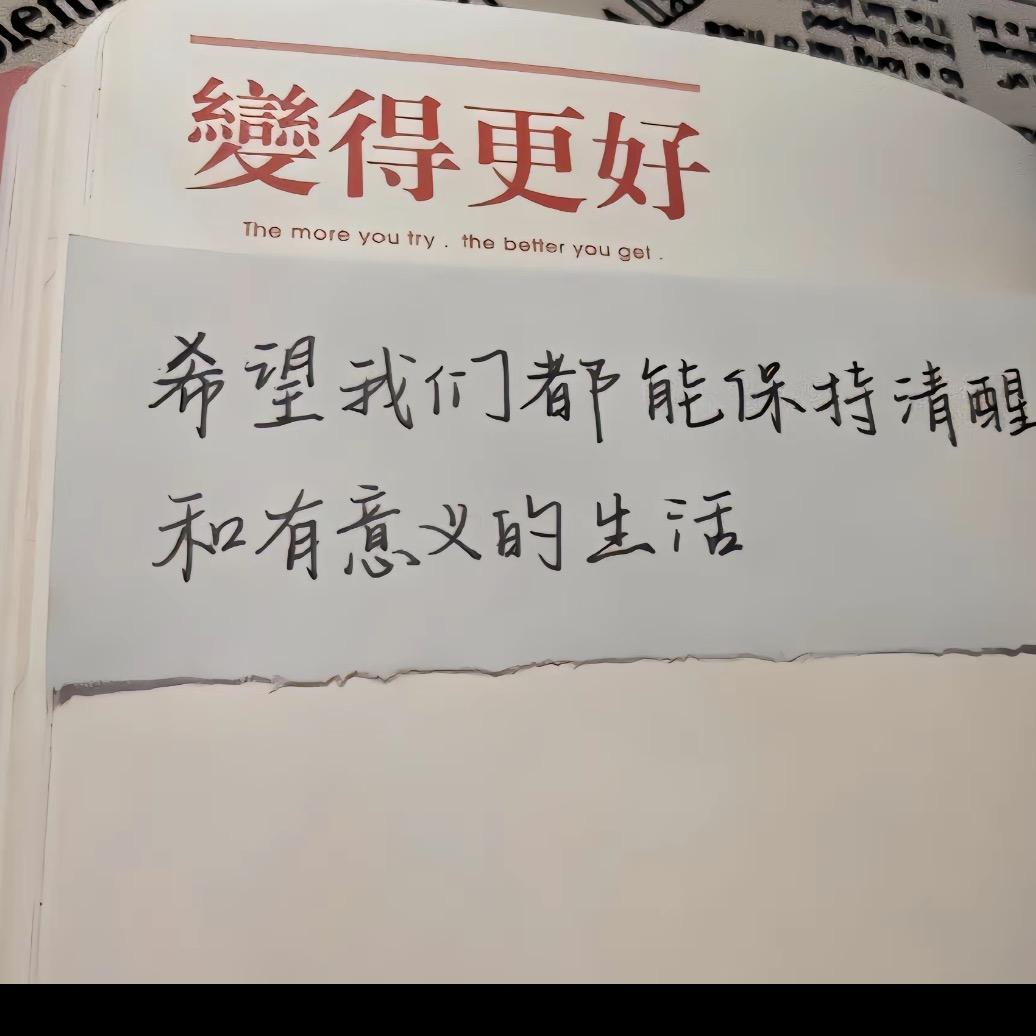 變得更好
The more you try . the better you get .
希望我们都能保持清醒
和有意义的生活